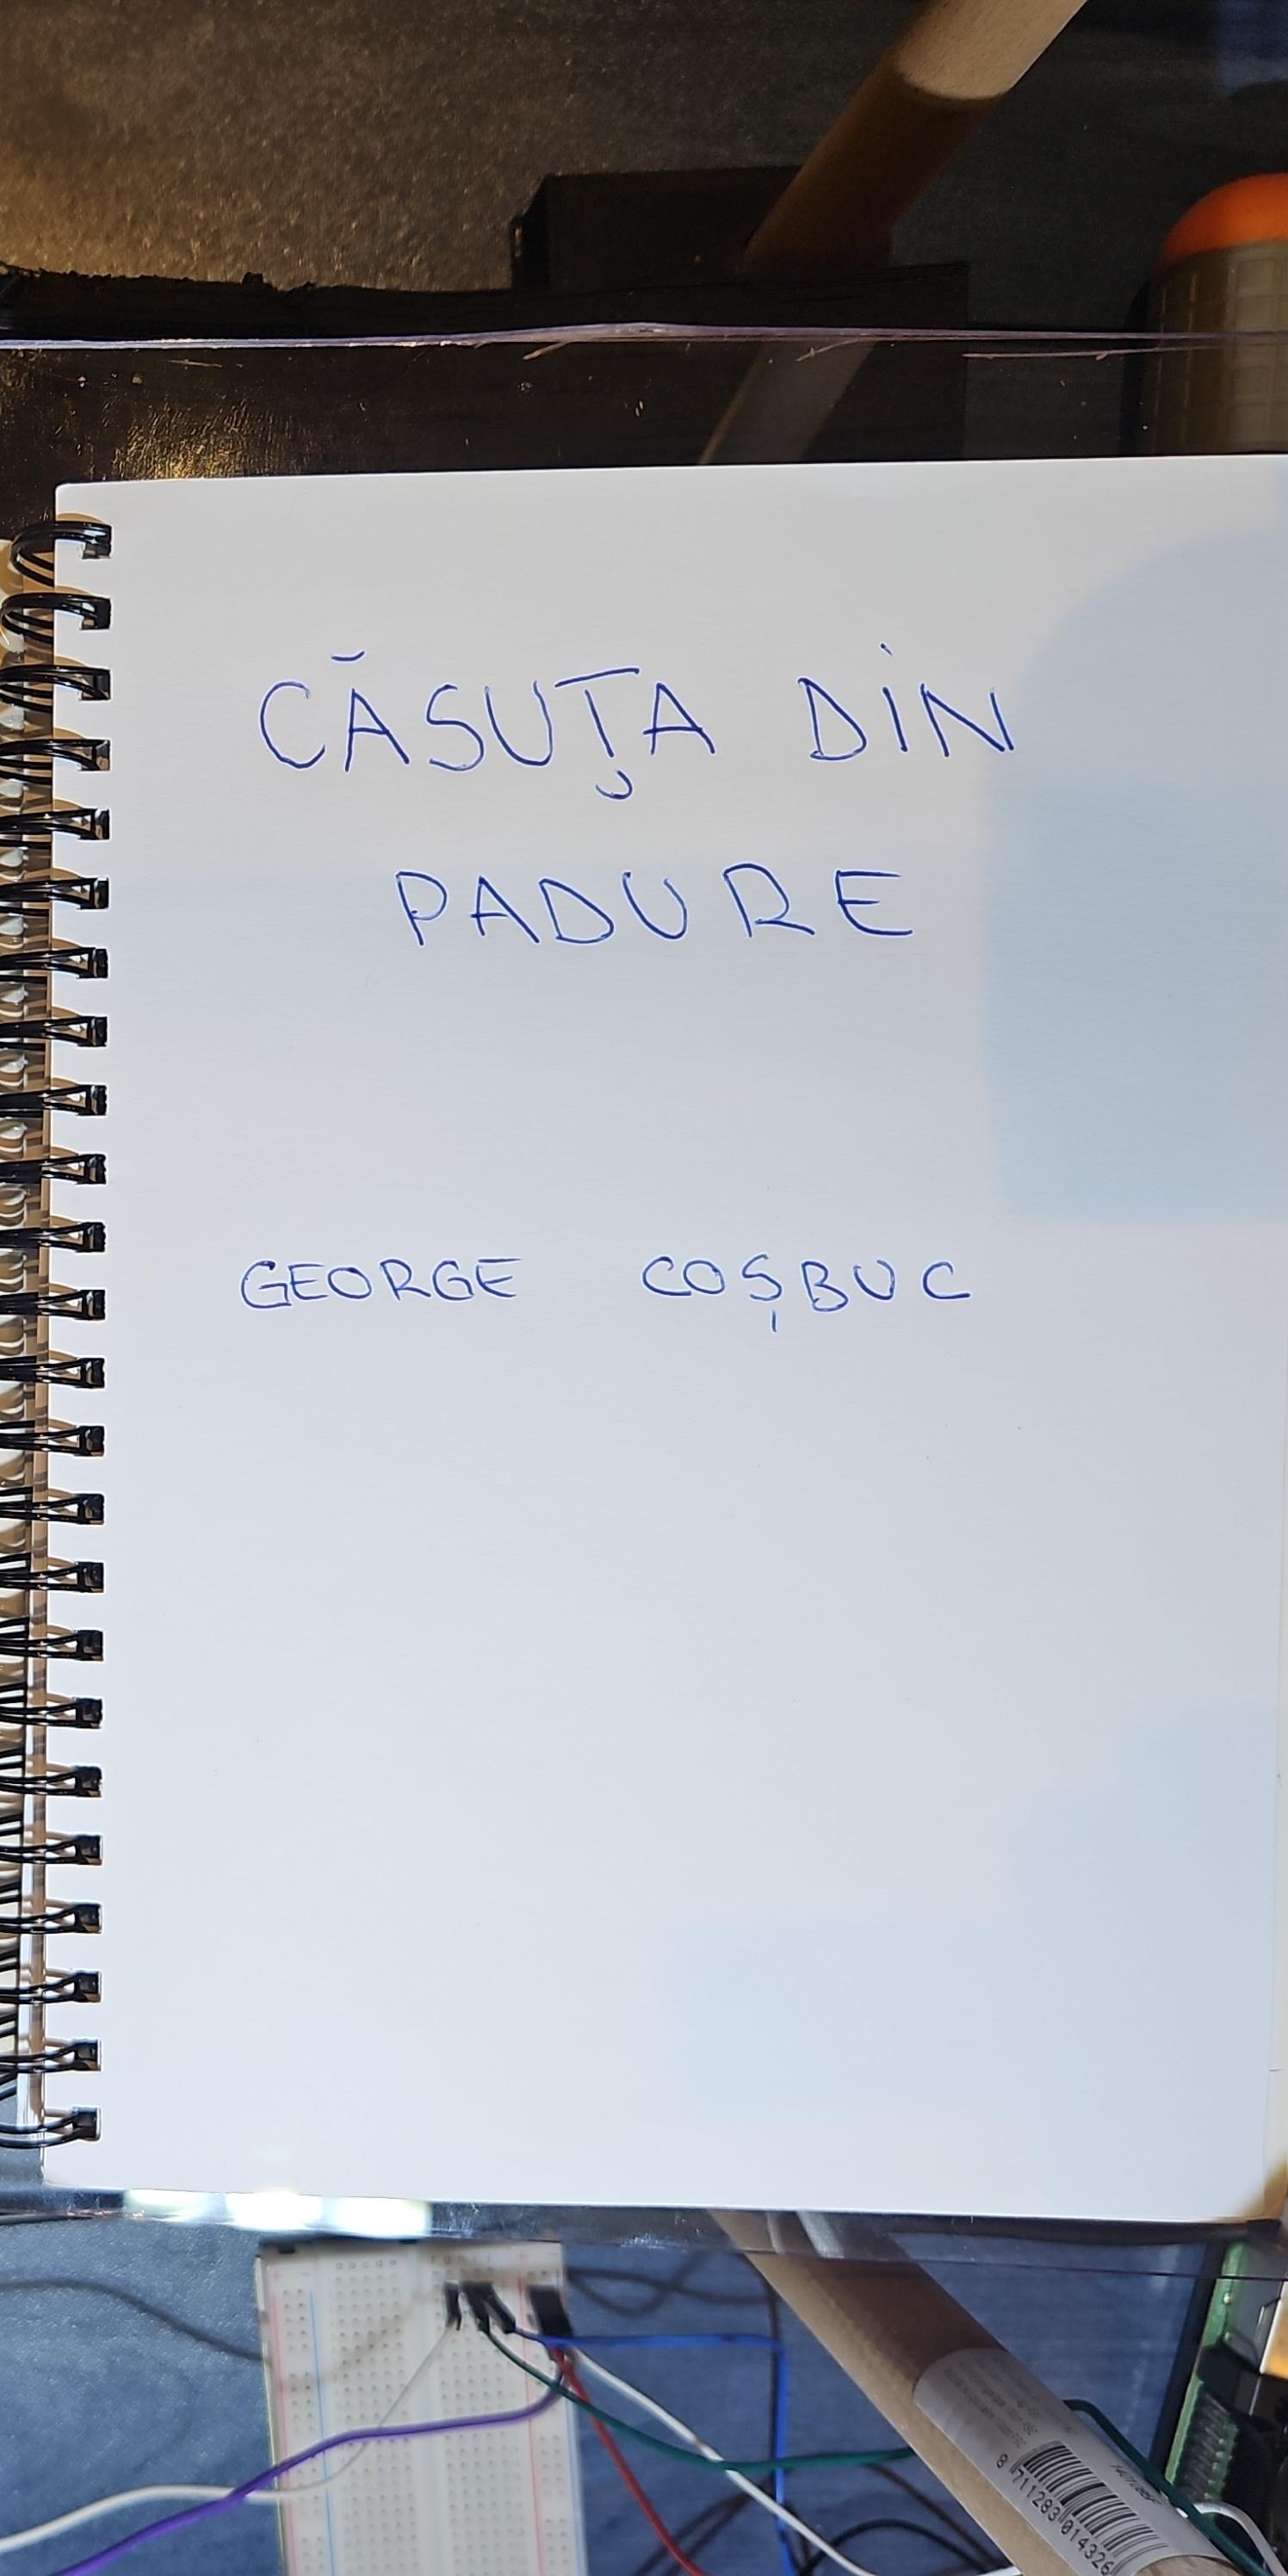 CĂSUȚA DIN
PADURE
GEORGE COȘBUC
8 711283 014326